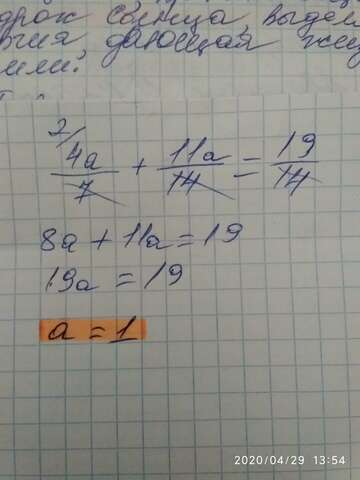 дарок солнца, выдел
дающая
или?
2/
4a/7 + 11a/14 = 19/14
8a + 11a = 19
19a = 19
a = 1
2020/04/29 13:54